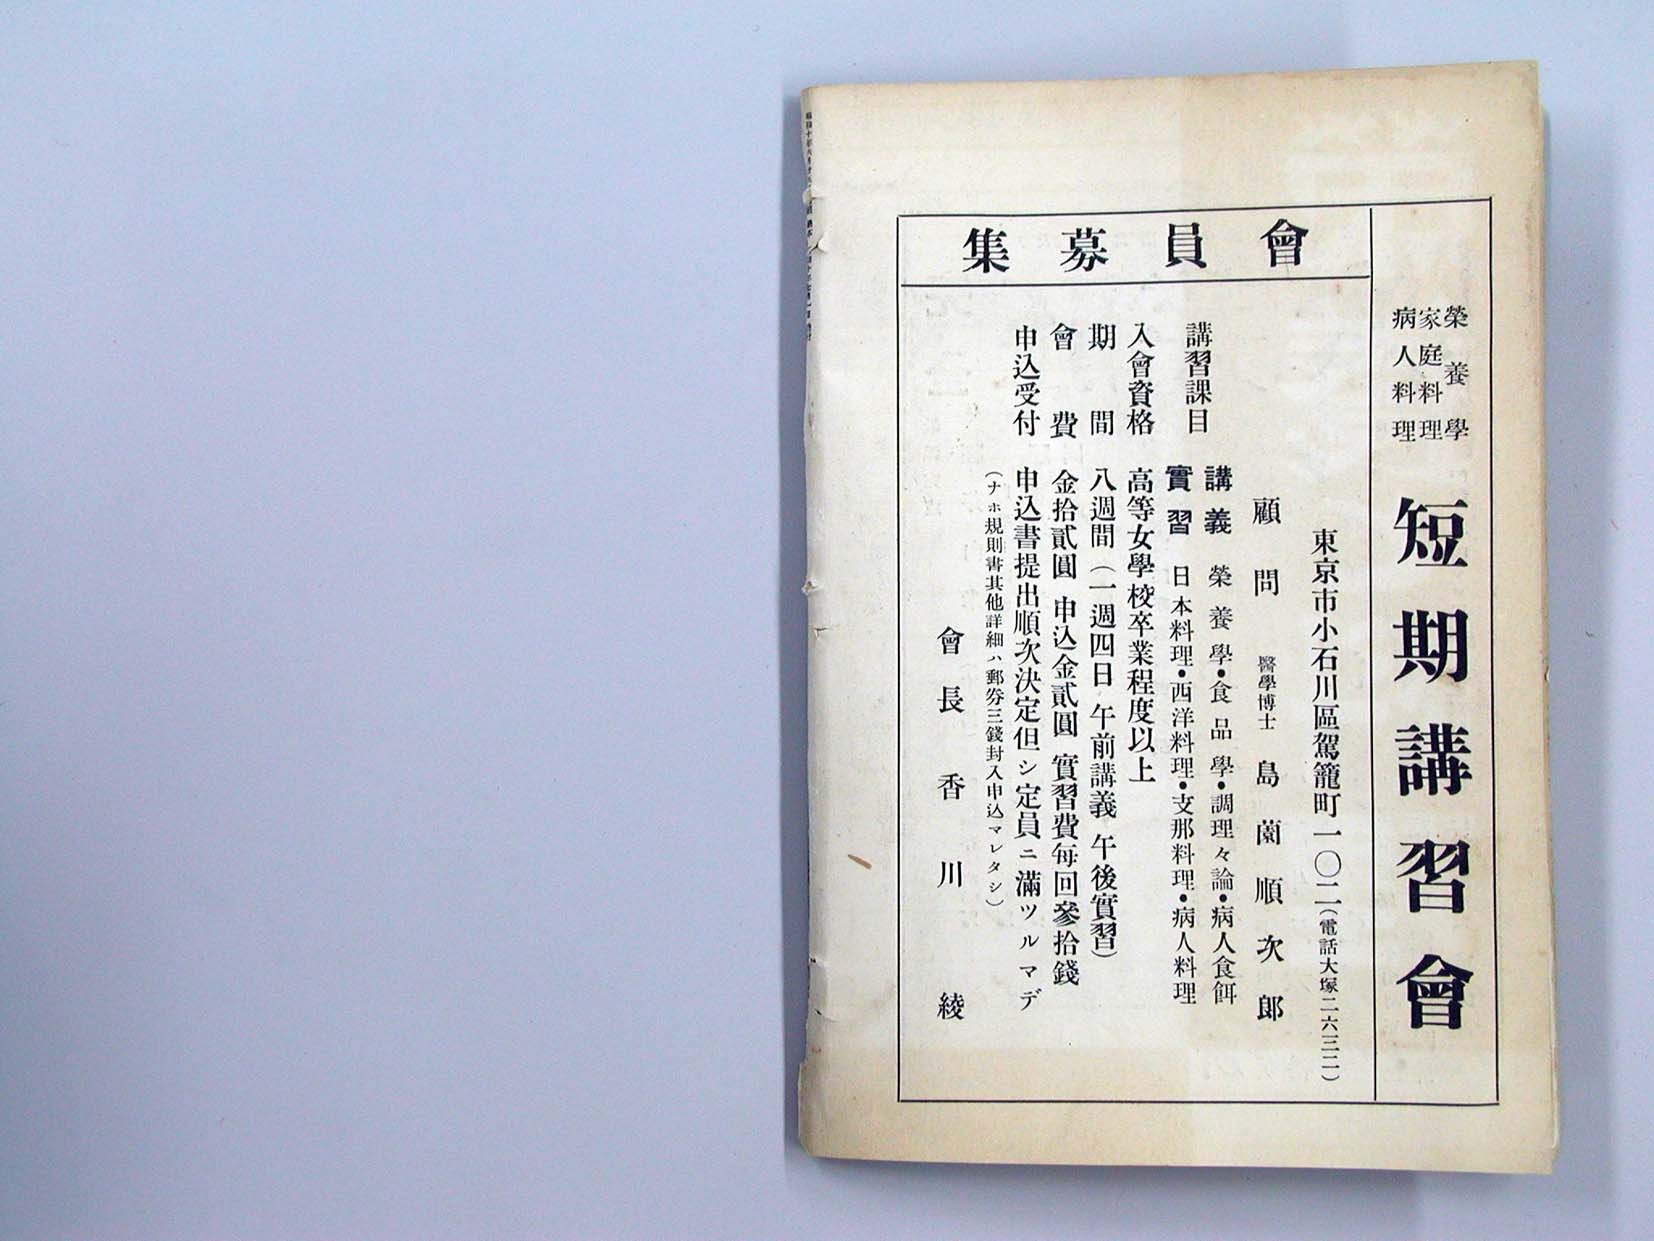 榮養學
家庭料理
病人料理
短期講習會
會員募集
東京市小石川區駕籠町一〇二(電話大塚二六三二)
顧問 醫學博士 島薗順次郎
講習課目
講義 榮養學・食品學・調理々論・病人食餌
實習 日本料理・西洋料理・支那料理・病人料理
入會資格 高等女學校卒業程度以上
期間 八週間(一週四日 午前講義 午後實習)
會費 金拾貳圓 申込金貳圓 實習費每回參拾錢
申込受付 申込書提出順次決定但シ定員ニ滿ツルマデ
(ナホ規則書其他詳細ハ郵券三錢封入申込マレタシ)
會長 香川 綾